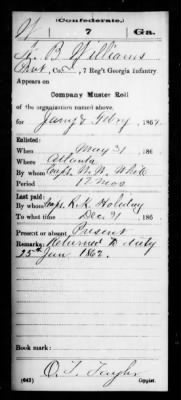 (Confederate.)
W 7 Ga.
B Williams
Pvt, Co., 7 Reg't Georgia Infantry
Appears on
Company Muster Roll
of the organization named above,
for Jany & Feby, 1864.
Enlisted:
When May 31, 186
Where Atlanta
By whom Capt. W. W. White
Period 12 mos
Last paid:
By whom Capt. K. K. Holiday
To what time Dec. 31, 186
Present or absent Present
Remarks: Returned to duty
25th Jan 1862.
Book mark:
(642) Copyist.